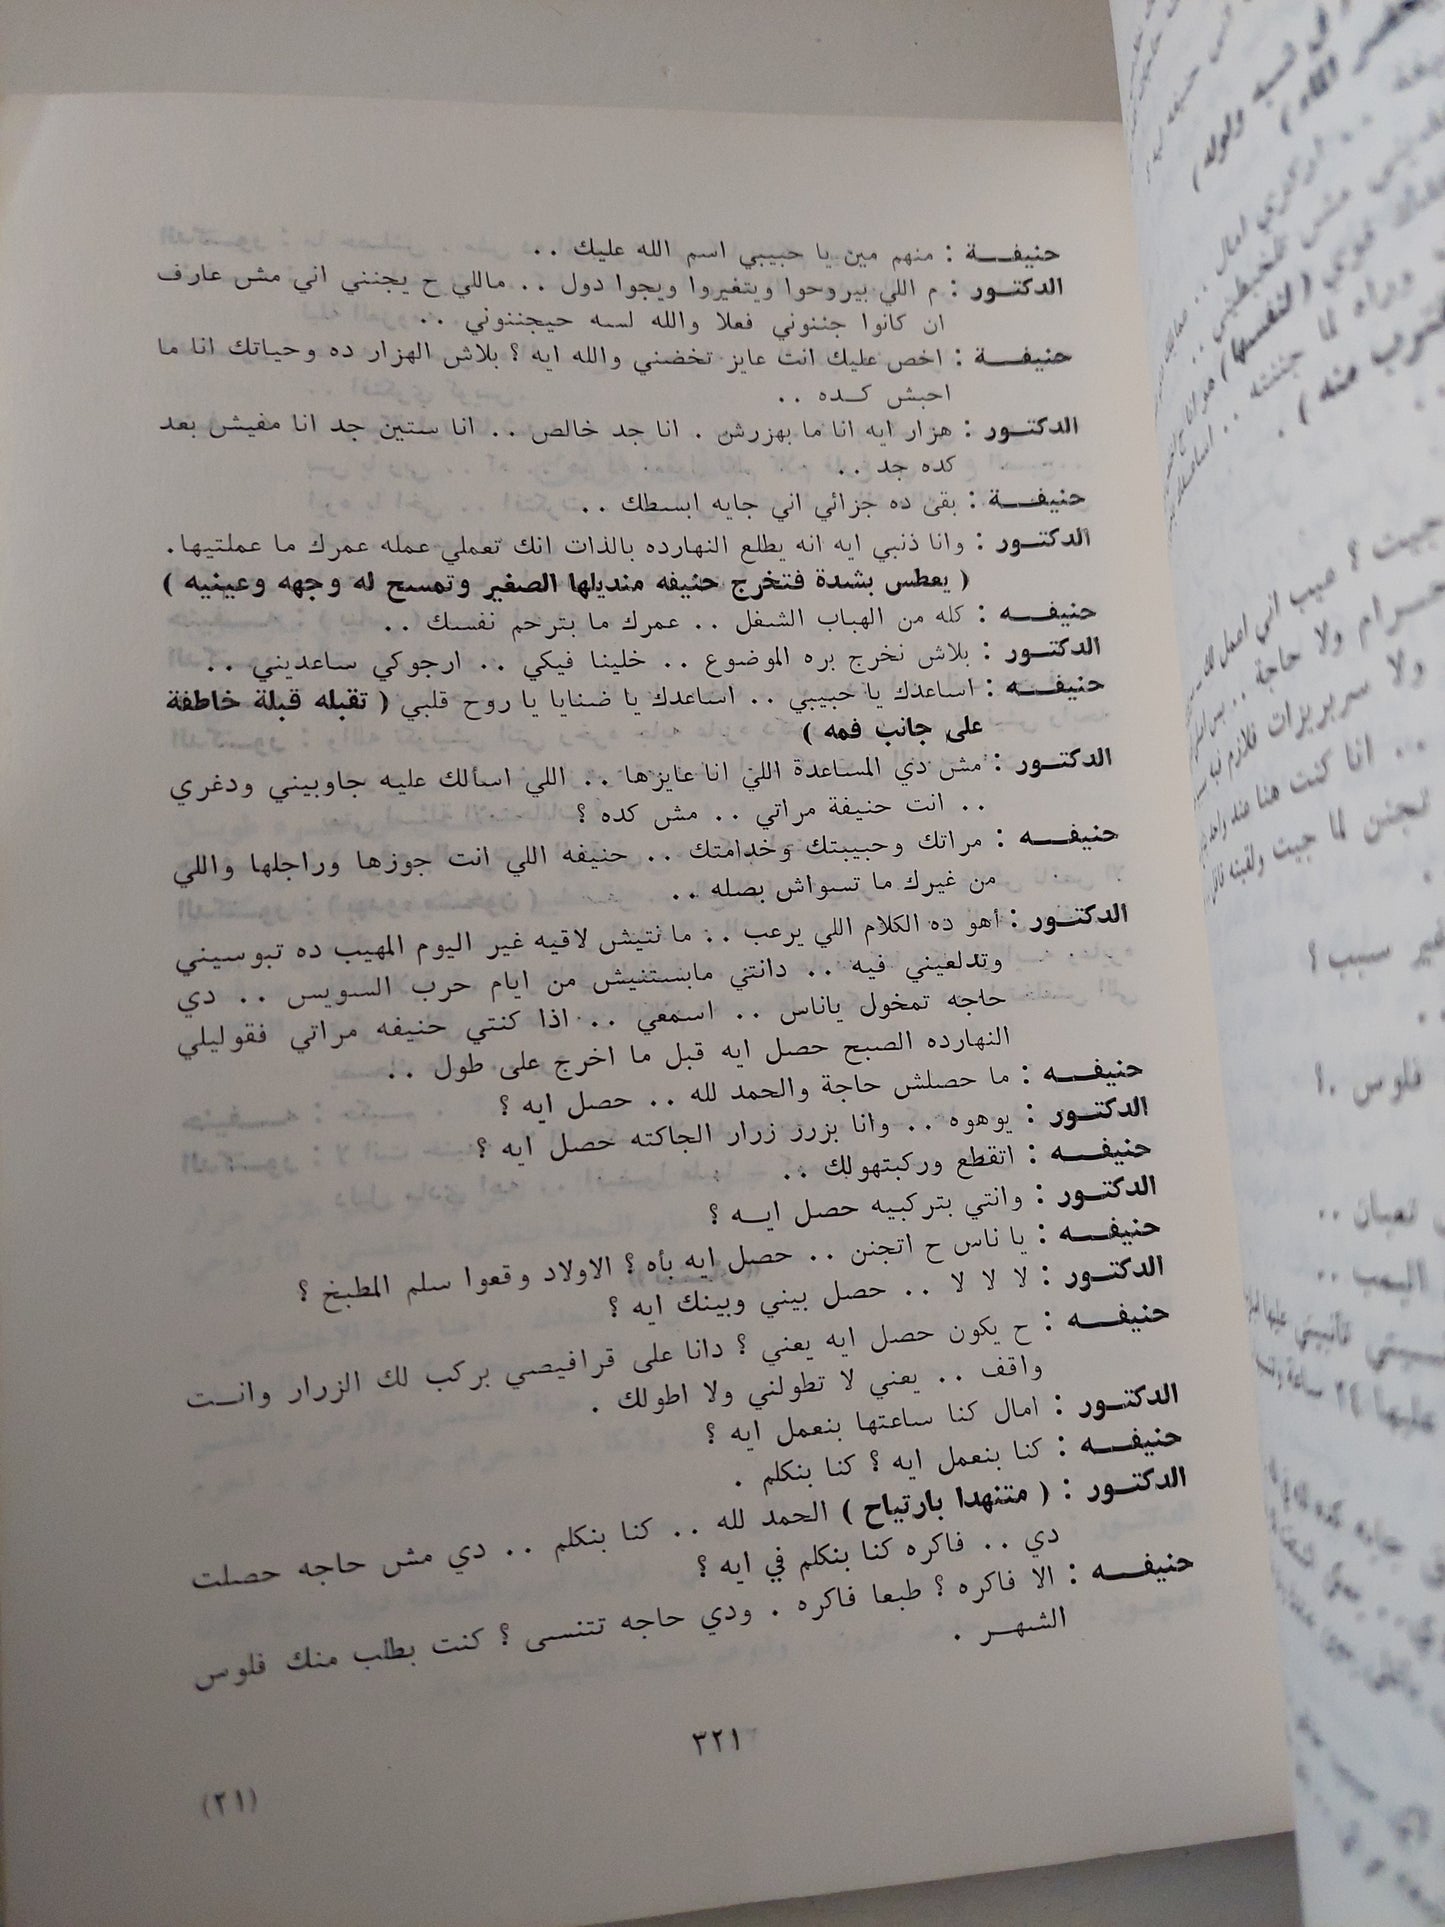 حنيفـــة : منهم مين يا حبيبي اسم الله عليك . .
الدكتــور : م اللي بيروحوا ويتغيروا ويجوا دول . . ماللي ح يجنني اني مش عارف
ان كانوا جننوني فعلا والله لسه حيجننوني . .
حنيفـــة : اخص عليك انت عايز تخضني والله ايه ؟ بلاش الهزار ده وحياتك انا ما
احبش كــده . .
الدكتــور : هزار ايه انا ما بهزرش . انا جد خالص . . انا ستين جد انا مفيش بعد
كده جد . .
حنيفـــة : بقى ده جزائي اني جايه ابسطك . .
الدكتــور : وانا ذنبي ايه انه يطلع النهارده بالذات انك تعملي عمله عمرك ما عملتيها .
( يعطس بشدة فتخرج حنيفه منديلها الصغير وتمسح له وجهه وعينيه )
حنيفـــه : كله من الهباب الشغل . . عمرك ما بترحم نفسك . .
الدكتــور : بلاش نخرج بره الموضوع . . خلينا فيكي . . ارجوكي ساعديني . .
حنيفـــه : اساعدك يا حبيبي . . اساعدك يا ضنايا يا روح قلبي ( تقبله قبلة خاطفة
على جانب فمه )
الدكتــور : مش دي المساعدة اللي انا عايزها . . اللي اسألك عليه جاوبيني ودغري
. . انت حنيفة مراتي . . مش كده ؟
حنيفـــه : مراتك وحبيبتك وخدامتك . . حنيفه اللي انت جوزها وراجلها واللي
من غيرك ما تسواش بصله . .
الدكتــور : أهو ده الكلام اللي يرعب . . ما نتيش لاقيه غير اليوم المهبب ده تبوسيني
وتدلعيني فيه . . دانتي مابستنيش من ايام حرب السويس . . دي
حاجه تمخول ياناس . . اسمعي . . اذا كنتي حنيفه مراتي فقوليلي
النهارده الصبح حصل ايه قبل ما اخرج على طول . .
حنيفـــه : ما حصلش حاجة والحمد لله . . حصل ايه ؟
الدكتــور : يوهوه . . وانا بزرر زرار الجاكته حصل ايه ؟
حنيفـــه : اتقطع وركبتهولك . .
الدكتــور : وانتي بتركبيه حصل ايــه ؟
حنيفـــه : يا ناس ح اتجنن . . حصل ايه بأه ؟ الاولاد وقعوا سلم المطبخ ؟
الدكتــور : لا لا لا . . حصل بيني وبينك ايه ؟
حنيفـــه : ح يكون حصل ايه يعني ؟ دانا على قرافيصي بركب لك الزرار وانــت
واقف . . يعني لا تطولني ولا اطولك .
الدكتــور : امال كنا ساعتها بنعمل ايه ؟
حنيفـــه : كنا بنعمل ايه ؟ كنا بنكلم .
الدكتــور : ( متنهدا بارتياح ) الحمد لله . . كنا بنكلم . . دي مش حاجه حصلت
دي . . فاكره كنا بنكلم في ايه ؟
حنيفـــه : الا فاكره ؟ طبعا فاكره . ودي حاجه تتنسى ؟ كنت بطلب منك فلوس
الشهـر .
٣٢١
(٢١)
لنسبه ولوله )
جيت ؟ عيب اني اعمل لك
حرام ولا حاجة . .
. . انا كنت هنا عند واحد
لما جيت ولقيته
غير سبب ؟
فلوس . ؟
تعبان . .
عليها ٢٤ ساعة